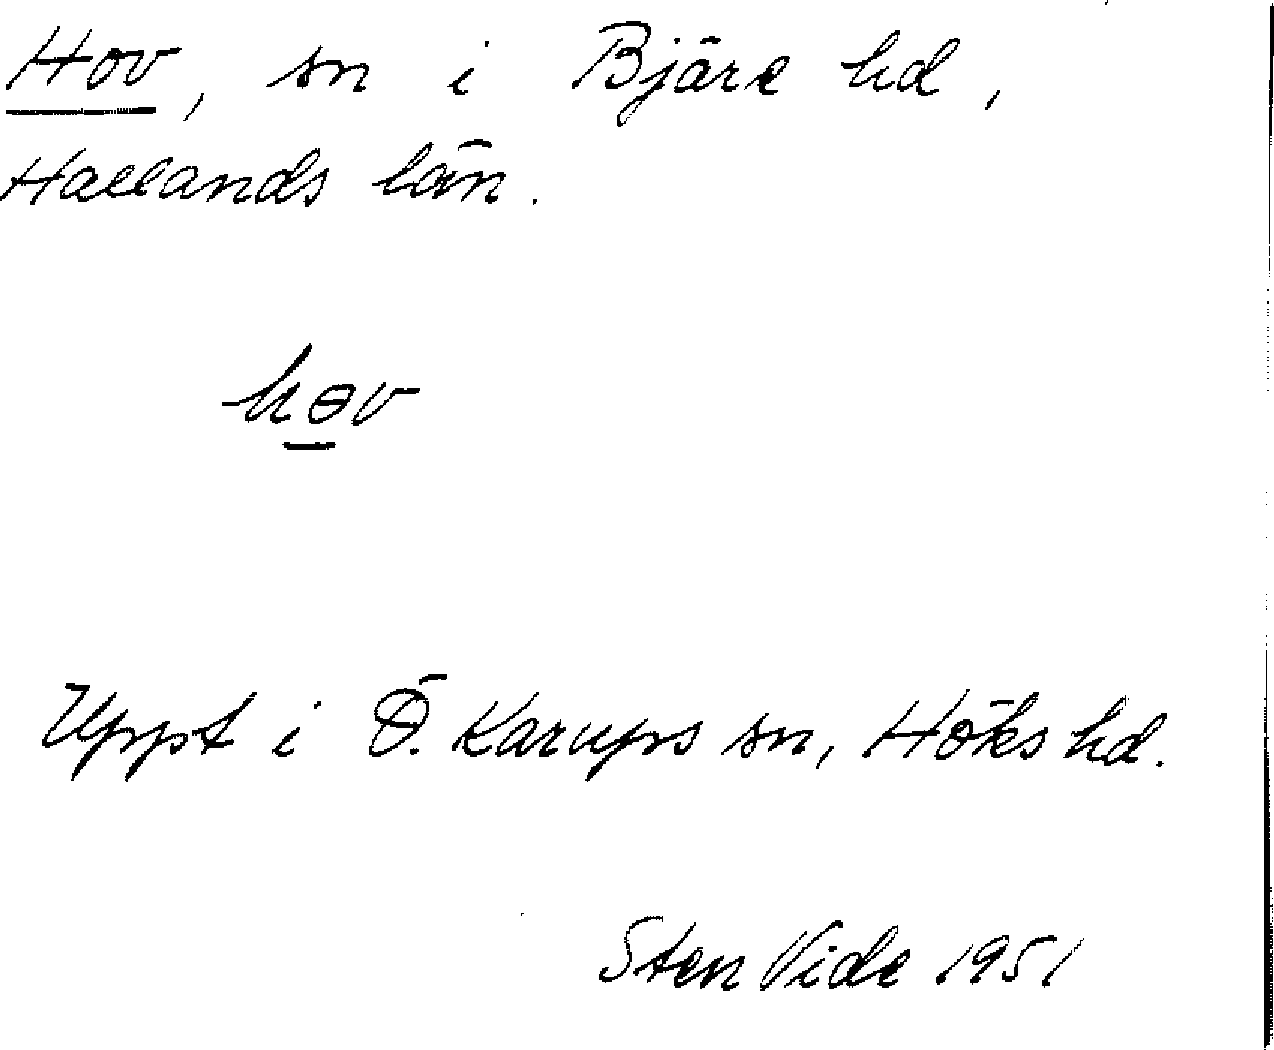 Hov, sn i Bjäre hd,
Hallands län.
hɵv
Uppt i Ö. Karups sn, Höks hd.
Sten Vide 1951